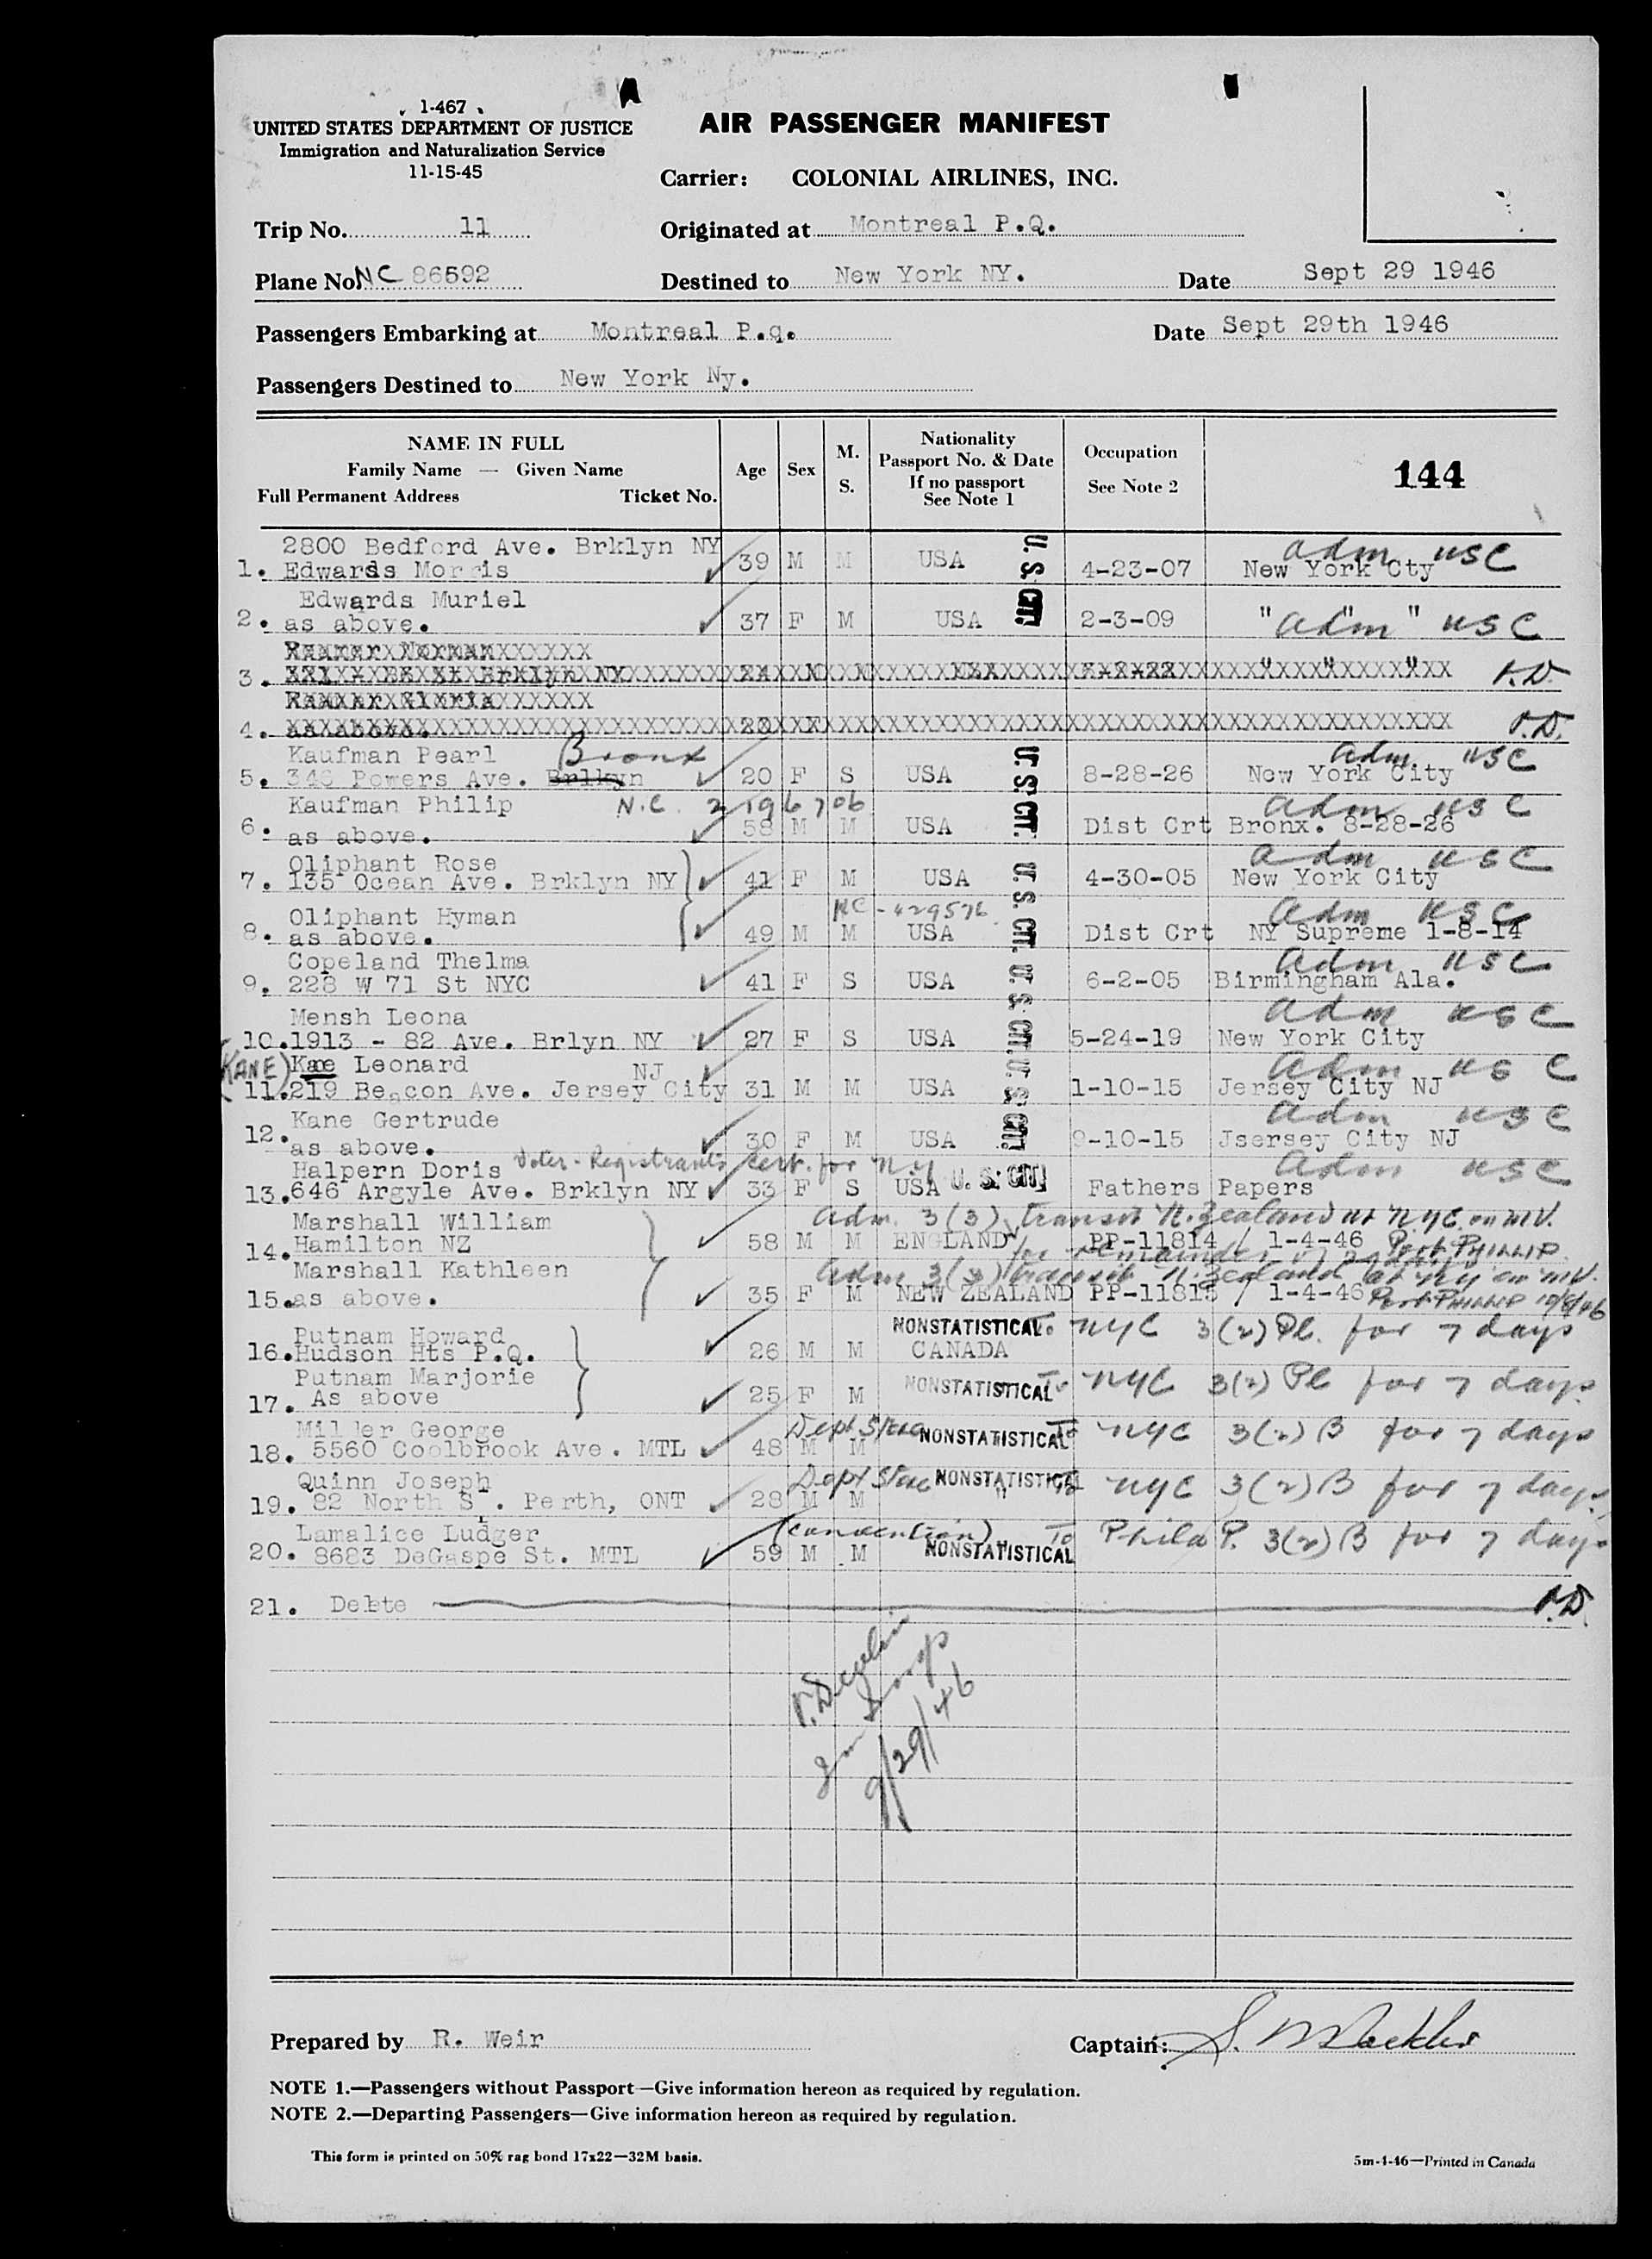 1-467
UNITED STATES DEPARTMENT OF JUSTICE
Immigration and Naturalization Service
11-15-45
AIR PASSENGER MANIFEST
Carrier: COLONIAL AIRLINES, INC.
Trip No. 11 Originated at Montreal P.Q.
Plane No. NC 86592 Destined to New York NY. Date Sept 29 1946
Passengers Embarking at Montreal P.q. Date Sept 29th 1946
Passengers Destined to New York Ny.
NAME IN FULL
Family Name — Given Name
Full Permanent Address Ticket No.
Age Sex M. S.
Nationality
Passport No. & Date
If no passport
See Note 1
Occupation
See Note 2
144
2800 Bedford Ave. Brklyn NY adm USC
1. Edwards Morris 39 M M USA U. S. CIT. 4-23-07 New York Cty
Edwards Muriel
2. as above. 37 F M USA 2-3-09 " " " adm USC
3. " " "
4. as above. 20 F
Kaufman Pearl Bronx adm USC
5. 348 Powers Ave. Brlkyn 20 F S USA U. S. CIT. 8-28-26 New York City
Kaufman Philip N.C. 2196706 adm USC
6. as above. 58 M M USA Dist Crt Bronx. 8-28-26
Oliphant Rose adm USC
7. 135 Ocean Ave. Brklyn NY 41 F M USA U. S. CIT. 4-30-05 New York City
Oliphant Hyman NC-429576 adm USC
8. as above. 49 M M USA Dist Crt NY Supreme 1-8-14
Copeland Thelma adm USC
9. 228 W 71 St NYC 41 F S USA U. S. CIT. 6-2-05 Birmingham Ala.
Mensh Leona adm USC
10. 1913 - 82 Ave. Brlyn NY 27 F S USA 5-24-19 New York City
(KANE) Kae Leonard NJ adm USC
11. 219 Beacon Ave. Jersey City 31 M M USA U. S. CIT. 1-10-15 Jersey City NJ
Kane Gertrude adm USC
12. as above. 30 F M USA 9-10-15 Jsersey City NJ
Halpern Doris Voter-Registrants Cert. for N.Y adm USC
13. 646 Argyle Ave. Brklyn NY 33 F S USA U. S. CIT. Fathers Papers
Marshall William adm. 3(3) transit N. Zealand at N.Y.C. on M.V.
14. Hamilton NZ 58 M M ENGLAND PP-11814 / 1-4-46 Port PHILLIP
for remainder of
Marshall Kathleen adm 3(3) transit N. Zealand at NY on M.V.
15. as above. 35 F M NEW ZEALAND PP-11815 / 1-4-46 Port PHILLIP 10/8/46
Putnam Howard NONSTATISTICAL To NYC 3(2) Pl. for 7 days
16. Hudson Hts P.Q. 26 M M CANADA
Putnam Marjorie
17. As above 25 F M NONSTATISTICAL To NYC 3(2) Pl for 7 days
Miller George Dept Store
18. 5560 Coolbrook Ave. MTL 48 M M NONSTATISTICAL To NYC 3(2) B for 7 days
Quinn Joseph Dept Store NONSTATISTICAL To NYC 3(2) B for 7 days
19. 82 North St. Perth, ONT 28 M M "
Lamalice Ludger (convention) To Phila P. 3(2) B for 7 days
20. 8683 DeGaspe St. MTL 59 M M NONSTATISTICAL
21. Delete
9/29/46
Prepared by R. Weir Captain:
NOTE 1.—Passengers without Passport—Give information hereon as required by regulation.
NOTE 2.—Departing Passengers—Give information hereon as required by regulation.
This form is printed on 50% rag bond 17x22—32M basis. 5m-4-46—Printed in Canada